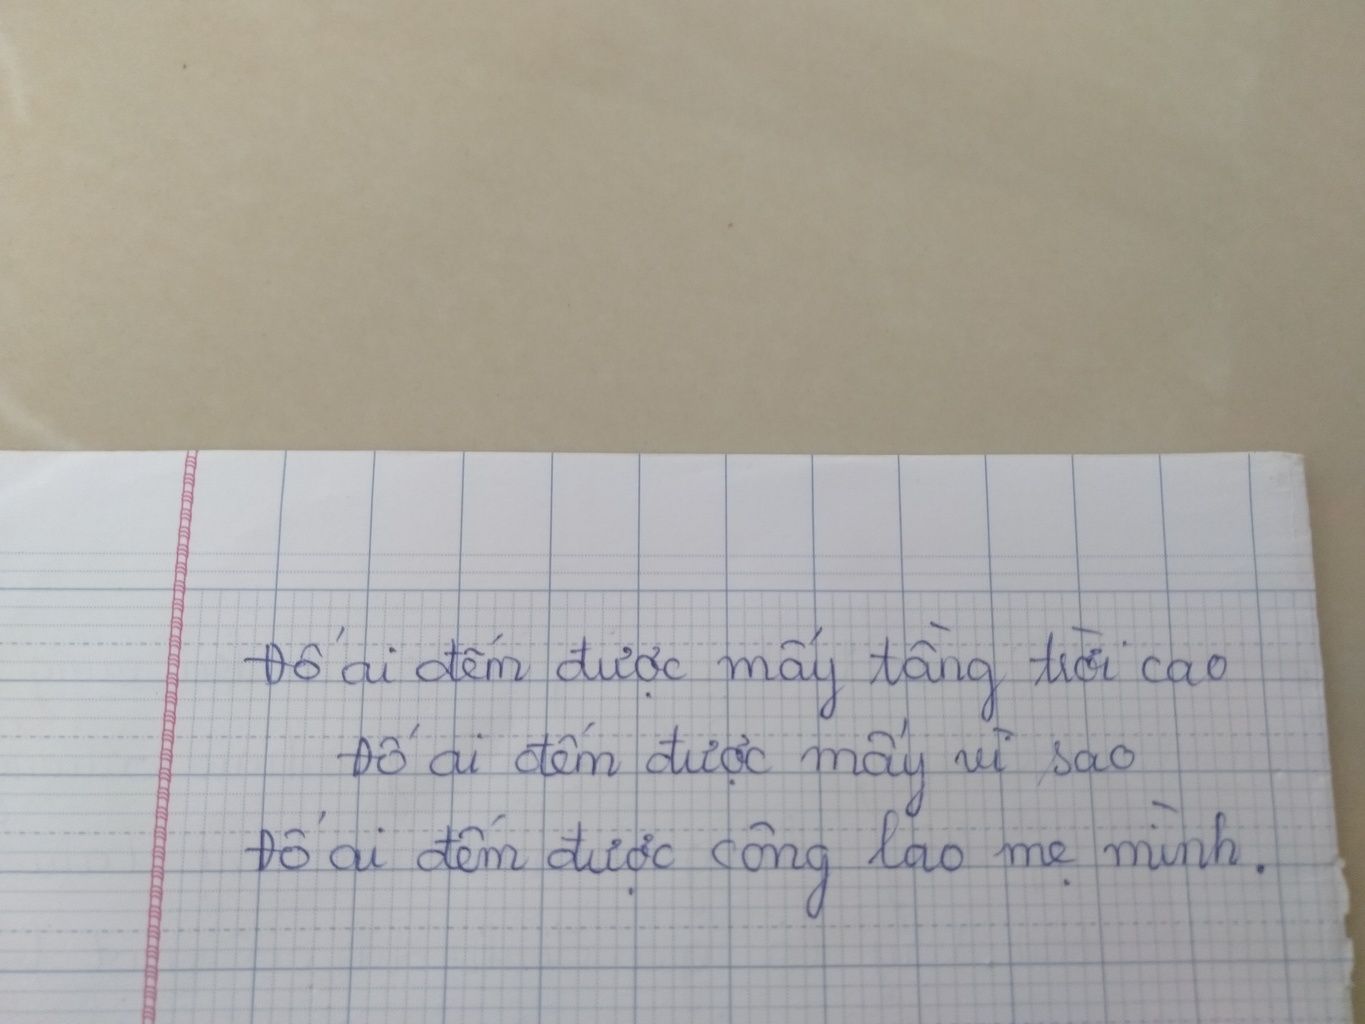 Đố ai đếm được mấy tầng trời cao
Đố ai đếm được mấy vì sao
Đố ai đếm được công lao mẹ mình.